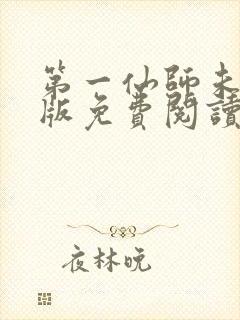 第一仙師未
版免費閱讀
夜林晚